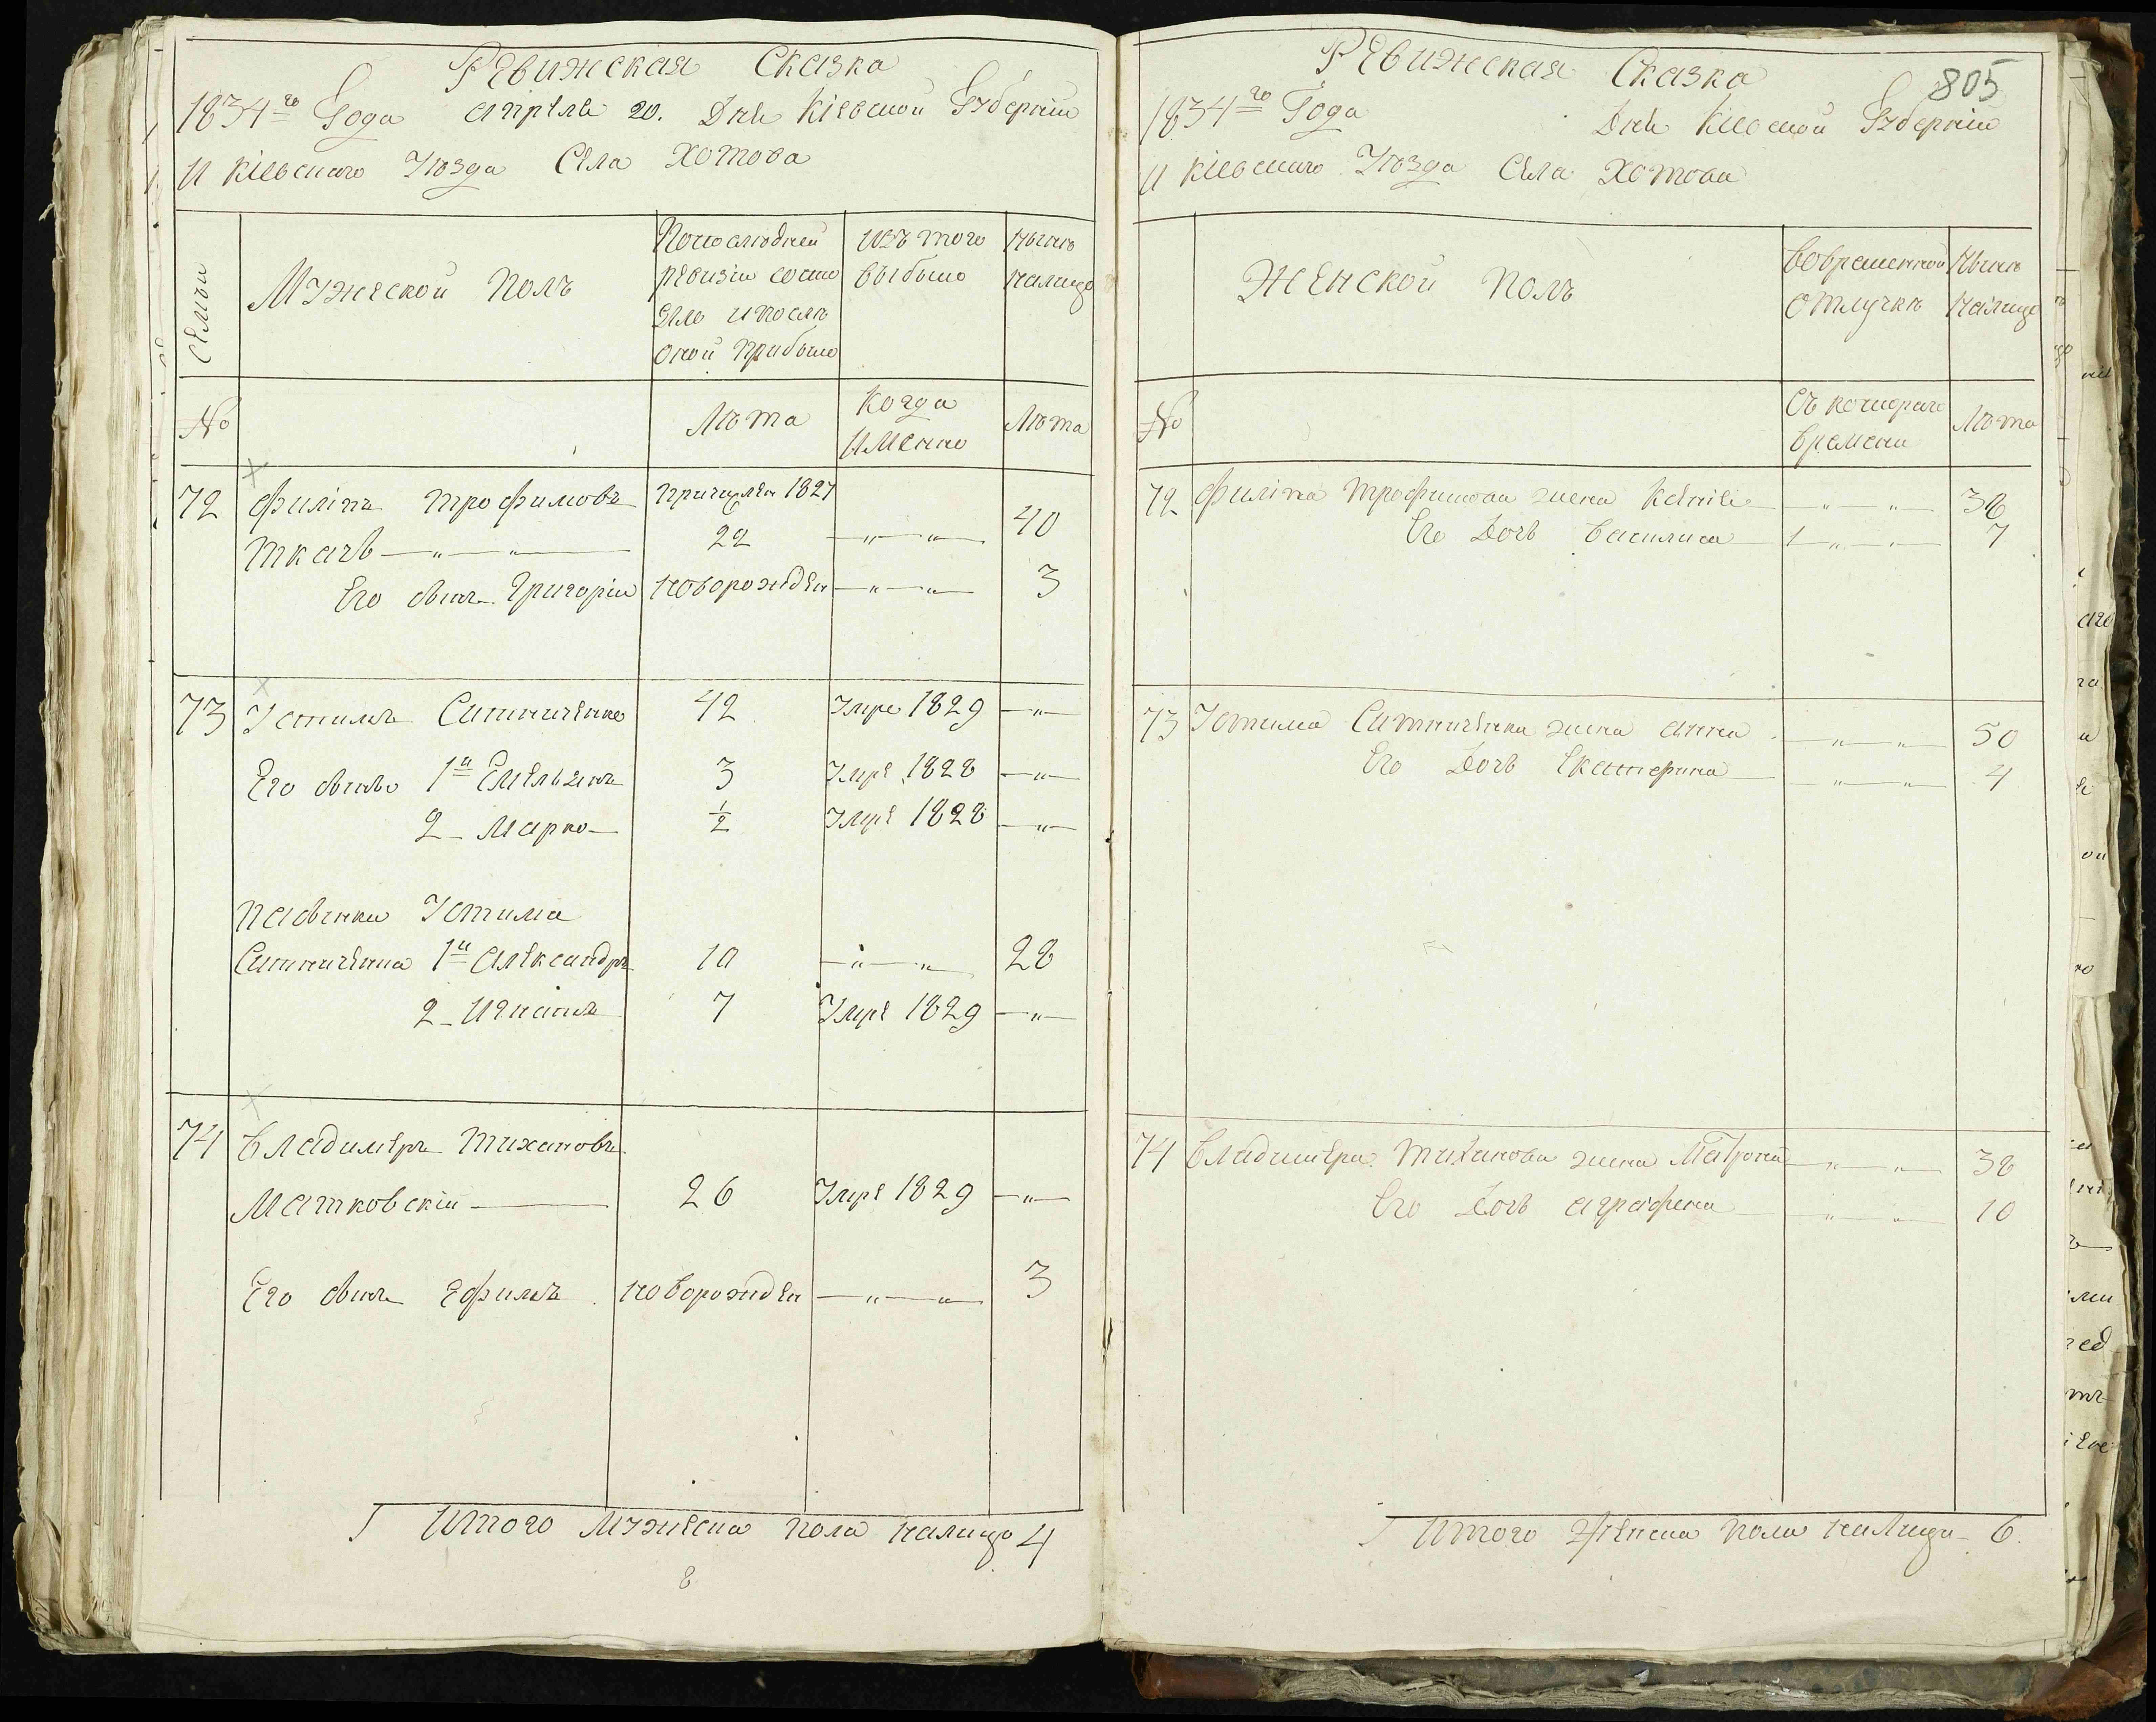 Ревижская Сказка
1834го Года апреля 20. Дня Кіевской Губерніи
И Кіевскаго Уезда Села Хотова
Семьи
Мужеской Полъ
Попоследней ревизіи состояло и после оной прибыло
Изъ того выбыло
Ныне налицо
№
Лета
Когда Именно
Лета
72 Филіпъ Трофимовъ причисленъ 1827
Ткачъ 22 40
Его сынъ Григорій новорожденъ 3
73 Устимъ Ситниченко 42 Умре 1829
Его сыновья 1й Емельянъ 3 Умре 1828
2 Марко ½ Умре 1828
Пасынки Устима
Ситниченка 1й Александръ 10 28
2 Игнатъ 7 Умре 1829
74 Владимеръ Тихановъ
Матковскій 26 Умре 1829
Его сынъ Ефимъ новорожденъ 3
Итого Мужеска пола налицо 4
8
805
Ревижская Сказка
1834го Года Дня Кіевской Губерніи
И Кіевскаго Уезда Села Хотова
Женской Полъ
Вовременной Отлучке
Ныне налицо
№
Съ котораго времени
Лета
72 Филіпа Трофимова жена 36
Его Дочь Василиса 7
73 Устима Ситниченка жена Анна 50
Его Дочь Екатерина 4
74 Владимера Тиханова жена Матрона 38
Его Дочь Аграфена 10
Итого Женска пола налицо 6.